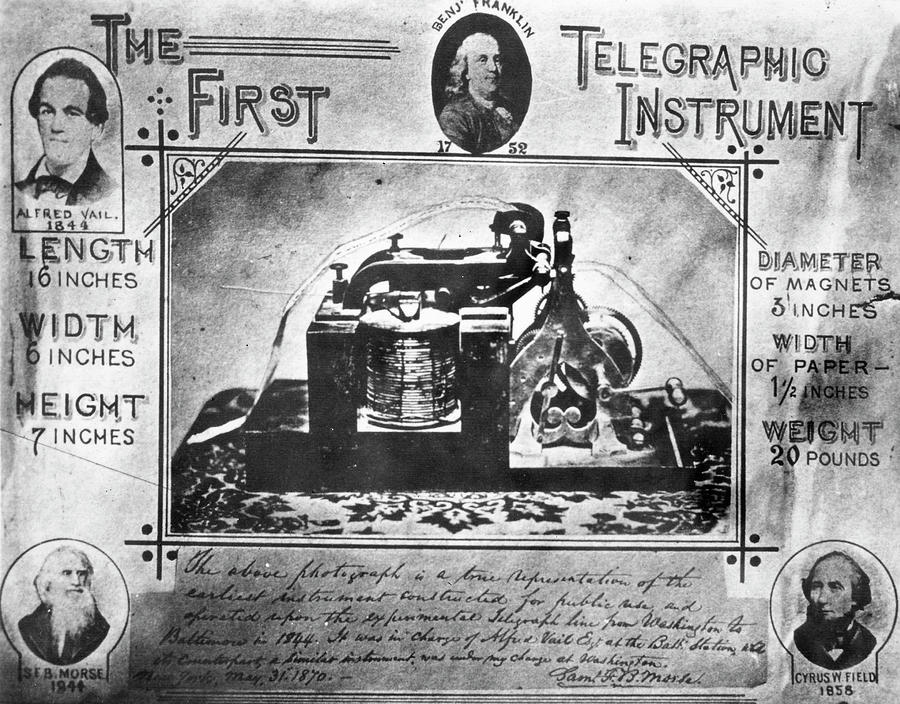 THE
FIRST
BENJ. FRANKLIN
1752
TELEGRAPHIC
INSTRUMENT
ALFRED VAIL.
1844
LENGTH
16 INCHES
WIDTH
6 INCHES
HEIGHT
7 INCHES
DIAMETER
OF MAGNETS
3 INCHES
WIDTH
OF PAPER-
1 1/2 INCHES
WEIGHT
20 POUNDS
The above photograph is a true representation of the
earliest instrument constructed for public use, and
operated upon the experimental Telegraph line from Washington to
Baltimore in 1844. It was in charge of Alfred Vail Esq. at the Balt. Station, and
its Counterpart, a Similar instrument, was under my charge at Washington.
New York, May, 31. 1870. –
Saml. F. B. Morse.
S.F.B. MORSE
1844
CYRUS W. FIELD
1858